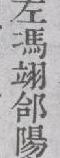 左馮翊郃陽